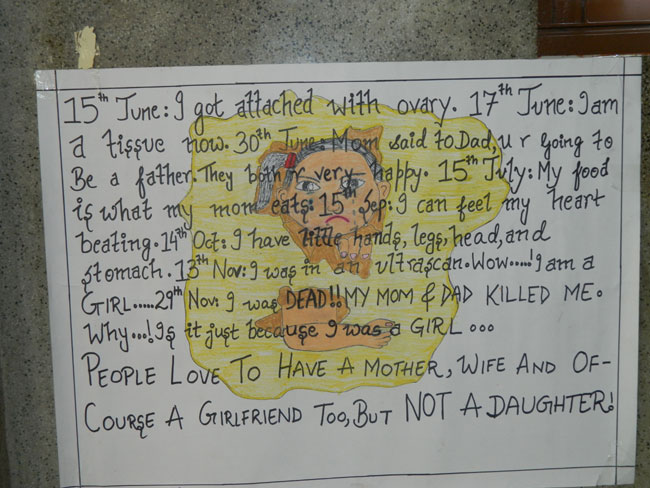 15th June: I got attached with ovary. 17th June: I am
a tissue now. 30th June: Mom said to Dad, u r going to
Be a father. They both r very happy. 15th July: My food
is what my mom eats. 15th Sep: I can feel my heart
beating. 14th Oct: I have little hands, legs, head, and
stomach. 13th Nov: I was in an ultrascan. Wow.....! I am a
GIRL..... 29th Nov: I was DEAD!! MY MOM & DAD KILLED ME.
Why...! Is it just because I was a GIRL ...
PEOPLE LOVE TO HAVE A MOTHER, WIFE AND OF-
COURSE A GIRLFRIEND TOO, BUT NOT A DAUGHTER!